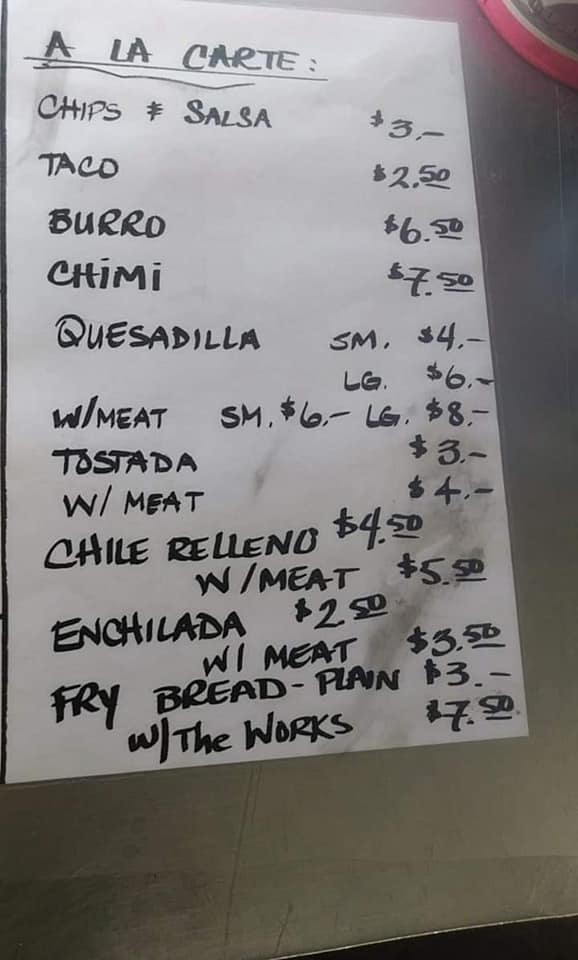 A LA CARTE:
CHIPS & SALSA $3.-
TACO $2.50
BURRO $6.50
CHIMI $7.50
QUESADILLA SM. $4.-
LG. $6.-
W/MEAT SM. $6.- LG. $8.-
TOSTADA $3.-
W/ MEAT $4.-
CHILE RELLENO $4.50
W/MEAT $5.50
ENCHILADA $2.50
W/ MEAT $3.50
FRY BREAD-PLAIN $3.-
W/The WORKS $7.50